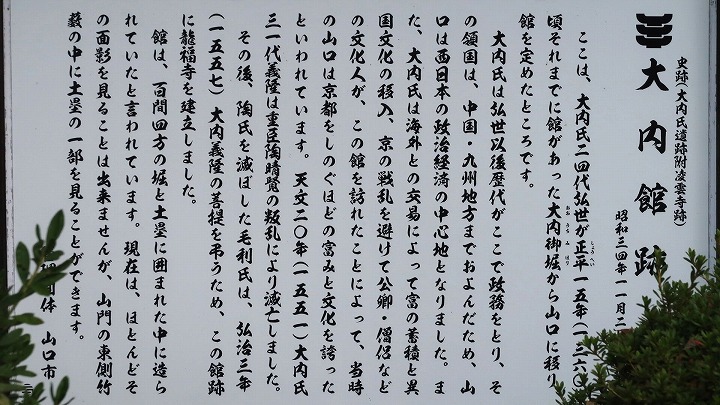 史跡(大内氏遺跡附凌雲寺跡)
大内館跡
昭和三四年一一月二
ここは、大内氏二四代弘世が正平一五年(一三六〇
しょうへい
頃それまでに館があった大内御堀から山口に移り
おおうちみほり
館を定めたところです。
大内氏は弘世以後歴代がここで政務をとり、そ
の領国は、中国・九州地方までおよんだため、山
口は西日本の政治経済の中心地となりました。ま
た、大内氏は海外との交易によって富の蓄積と異
国文化の移入、京の戦乱を避けて公卿・僧侶など
の文化人が、この館を訪れたことによって、当時
の山口は京都をしのぐほどの富みと文化を誇った
といわれています。天文二〇年(一五五一)大内氏
三一代義隆は重臣陶晴賢の叛乱により滅亡しました。
その後、陶氏を滅ぼした毛利氏は、弘治三年
(一五五七)大内義隆の菩提を弔うため、この館跡
に龍福寺を建立しました。
館は、百間四方の堀と土塁に囲まれた中に造ら
れていたと言われています。現在は、ほとんどそ
の面影を見ることは出来ませんが、山門の東側竹
藪の中に土塁の一部を見ることができます。
団体 山口市